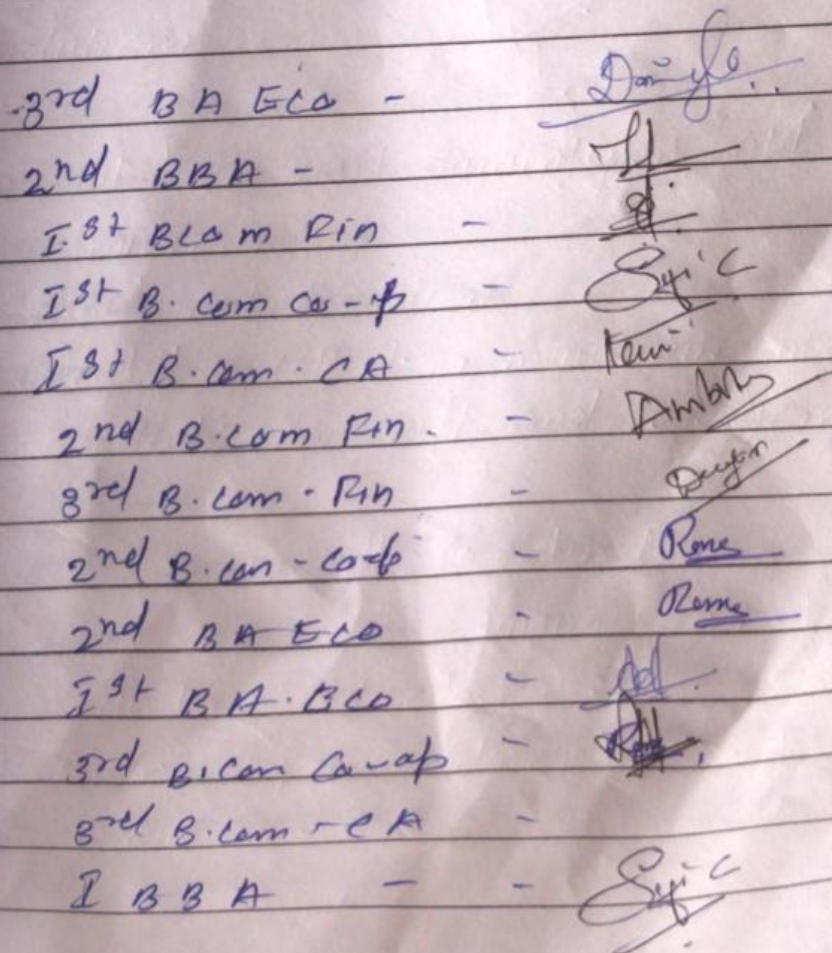 3rd BA Eco -
2nd BBA -
I st Bcom Fin -
I st B. com Co-op -
I st B.com. CA -
2nd B.com Fin. -
3rd B.com - Fin -
2nd B.com - Coop - Rems
2nd BA ECO - Reme
I st BA. ECO -
3rd B.Com Co-op -
3rd B.com - CA -
I BBA - -